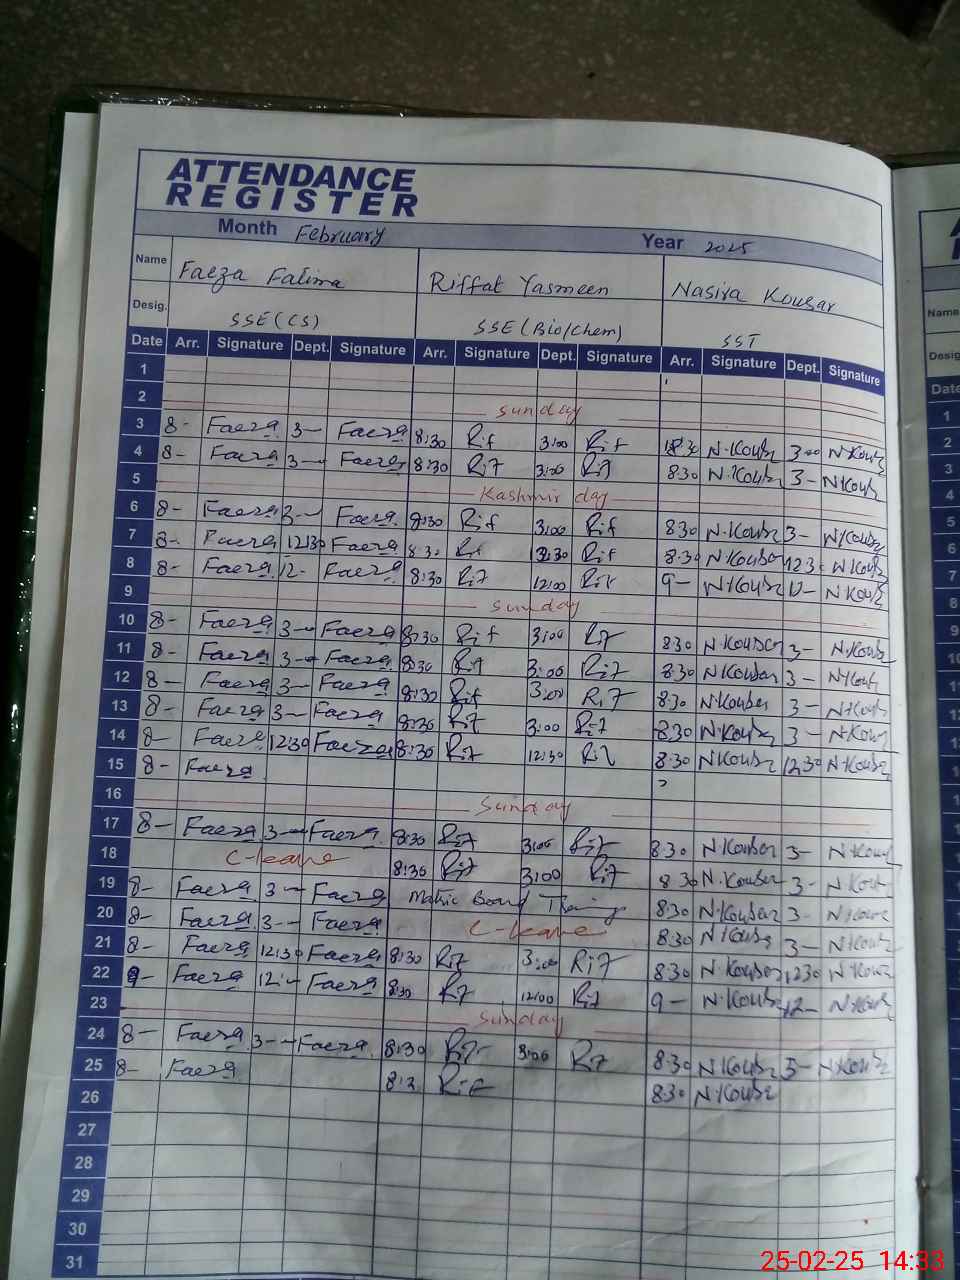 ATTENDANCE
REGISTER
Month February Year 2025
Name Faeza Fatima Riffat Yasmeen Nasira Kousar
Desig. SSE (CS) SSE (Bio/Chem) SST
Date Arr. Signature Dept. Signature Arr. Signature Dept. Signature Arr. Signature Dept. Signature
1
2 Sunday
3 8- Faeza 3- Faeza 8:30 Rif 3:00 Rif N.Kousr 3-00 N.Kousr
4 8- Faeza 3- Faeza 8:30 Rif 3:00 Rif 8:30 N.Kousr 3- N.Kousr
5 Kashmir day
6 8- Faeza 3- Faeza 8:30 Rif 3:00 Rif 8:30 N.Kousr 3- N.Kousr
7 8- Faeza 12:30 Faeza 8:30 Rif 12:30 Rif 8:30 N.Kouser 12:30 N.Kousr
8 8- Faeza 12- Faeza 8:30 Rif 12:00 Rif 9- N.Kousr 12- N.Kousr
9 Sunday
10 8- Faeza 3- Faeza 8:30 Rif 3:00 Rif 8:30 N.Kouser 3- N.Kousr
11 8- Faeza 3- Faeza 8:30 Rif 3:00 Rif 8:30 N.Kouser 3- N.Kousr
12 8- Faeza 3- Faeza 8:30 Rif 3:00 Rif 8:30 N.Kouser 3- N.Kousr
13 8- Faeza 3- Faeza 8:30 Rif 3:00 Rif 8:30 N.Kousr 3- N.Kousr
14 8- Faeza 12:30 Faeza 8:30 Rif 12:30 Rif 8:30 N.Kousr 12:30 N.Kousr
15 8- Faeza
16 Sunday
17 8- Faeza 3- Faeza 8:30 Rif 3:00 Rif 8:30 N.Kouser 3- N.Kousr
18 C-leave 8:30 Rif 3:00 Rif 8:30 N.Kouser 3- N.Kousr
19 8- Faeza 3- Faeza Matric Board Training 8:30 N.Kouser 3- N.Kousr
20 8- Faeza 3- Faeza C-leave 8:30 N.Kousr 3- N.Kousr
21 8- Faeza 12:30 Faeza 8:30 Rif 3:00 Rif 8:30 N.Kouser 12:30 N.Kousr
22 8- Faeza 12:- Faeza 8:30 Rif 12:00 Rif 9- N.Kousr 12- N.Kousr
23 Sunday
24 8- Faeza 3- Faeza 8:30 Rif 3:00 Rif 8:30 N.Kousr 3- N.Kousr
25 8- Faeza 8:3 Rif 8:30 N.Kousr
26
27
28
29
30
31
Name
Desig
Date
1
2
3
4
5
6
7
8
9
10
11
12
25-02-25 14:33